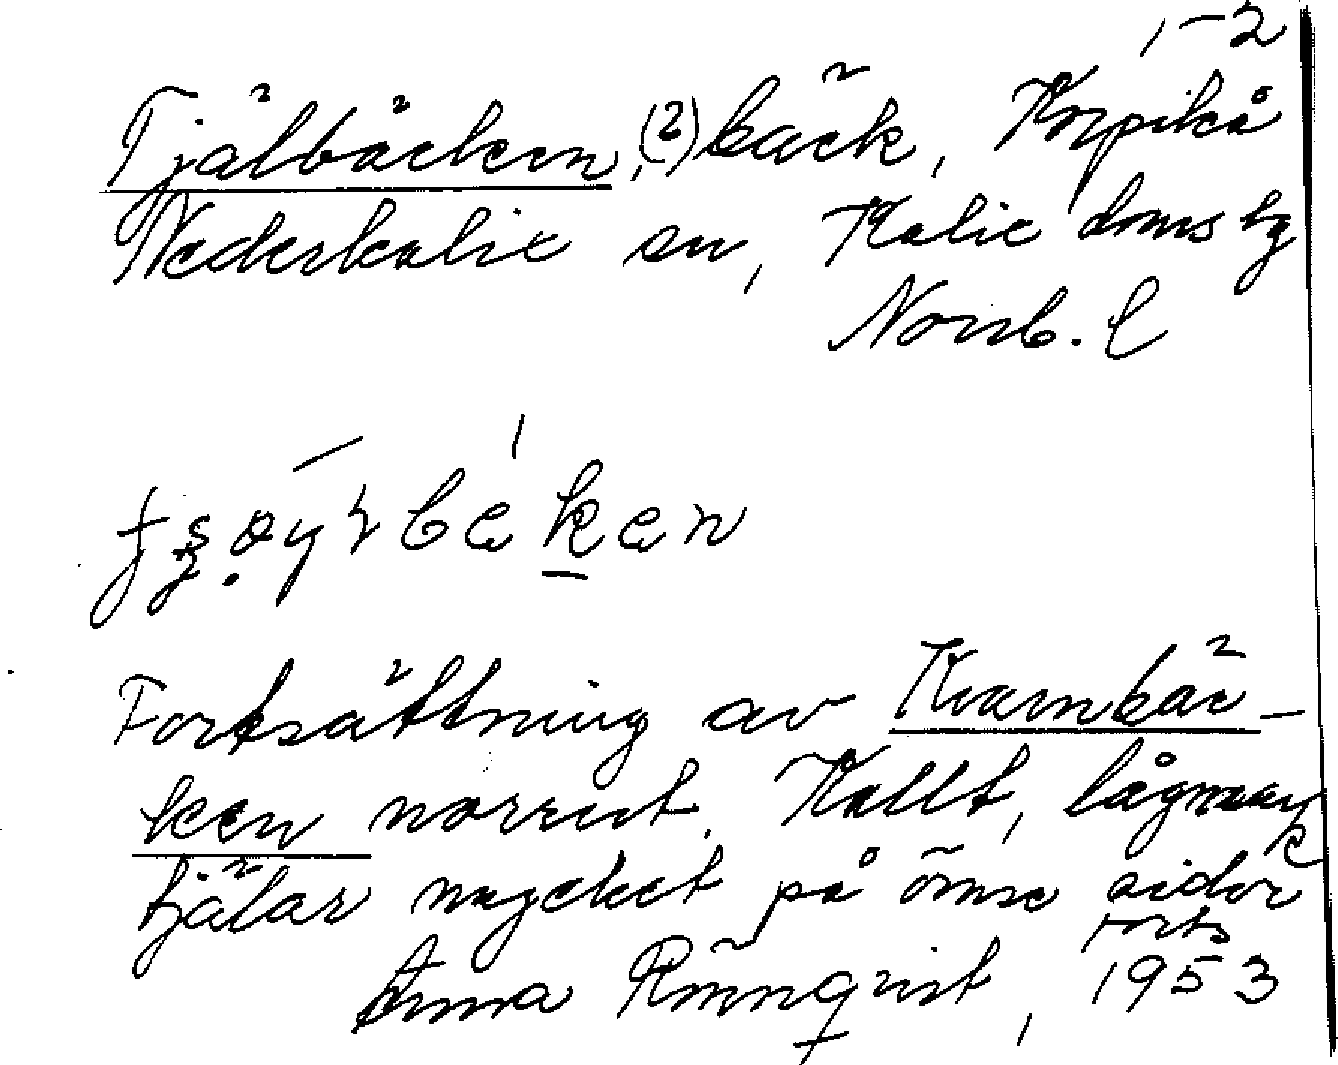 1-2
Tjälbäcken, (2) bäck, Korpikå
Nederkalix sn, Kalix doms hg
Norrb. l
Fortsättning av Kvarnbäc-
ken norrut. Kallt, lågmark,
tjälar mycket på ömse sidor
forts
Anna Rönnqvist, 1953